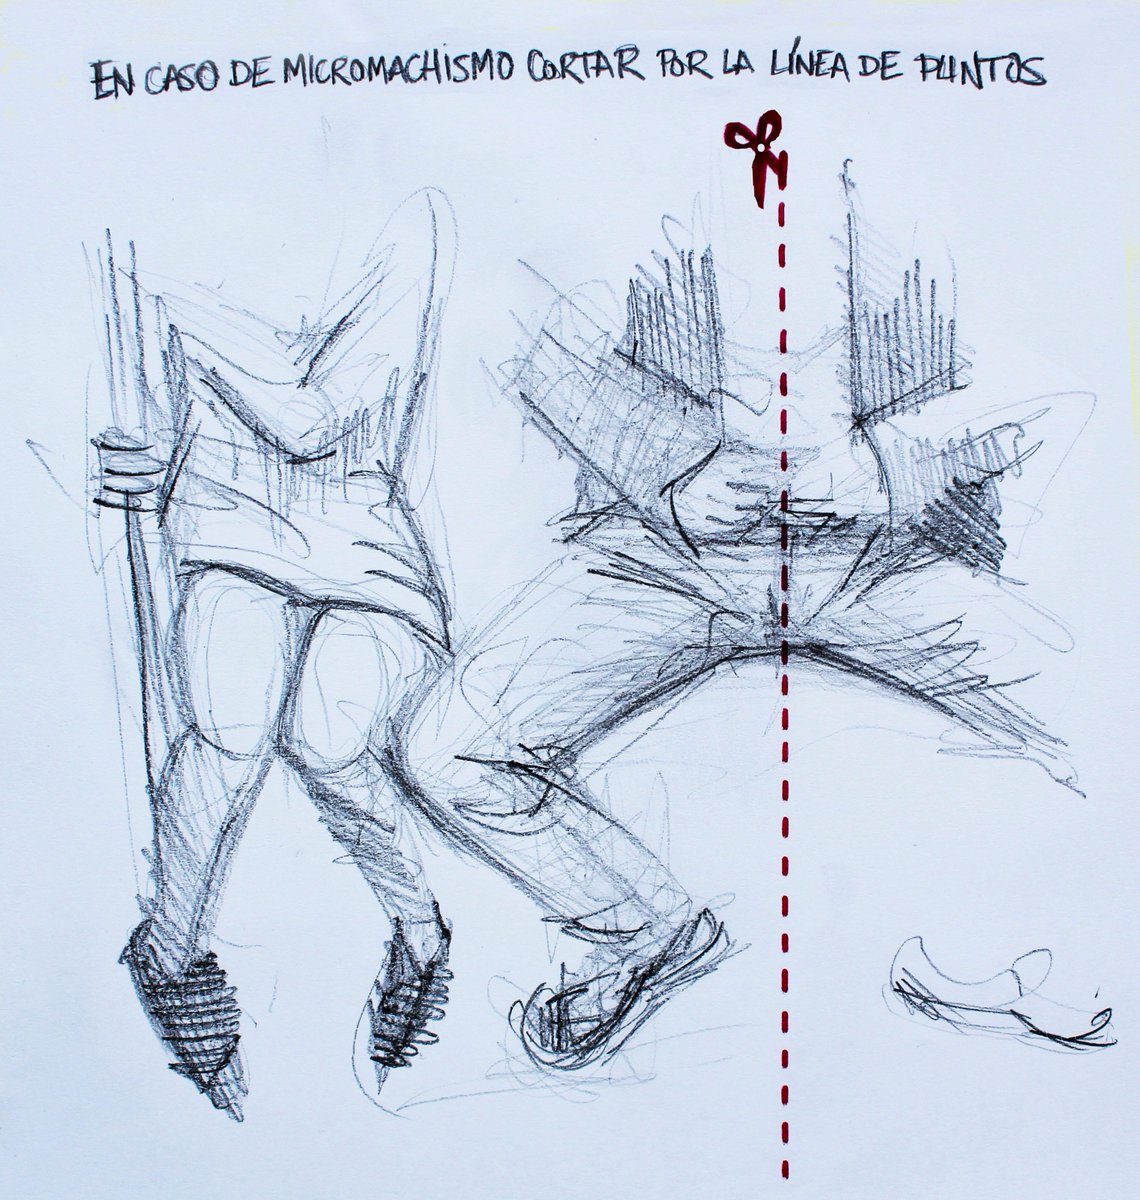 EN CASO DE MICROMACHISMO CORTAR POR LA LÍNEA DE PUNTOS